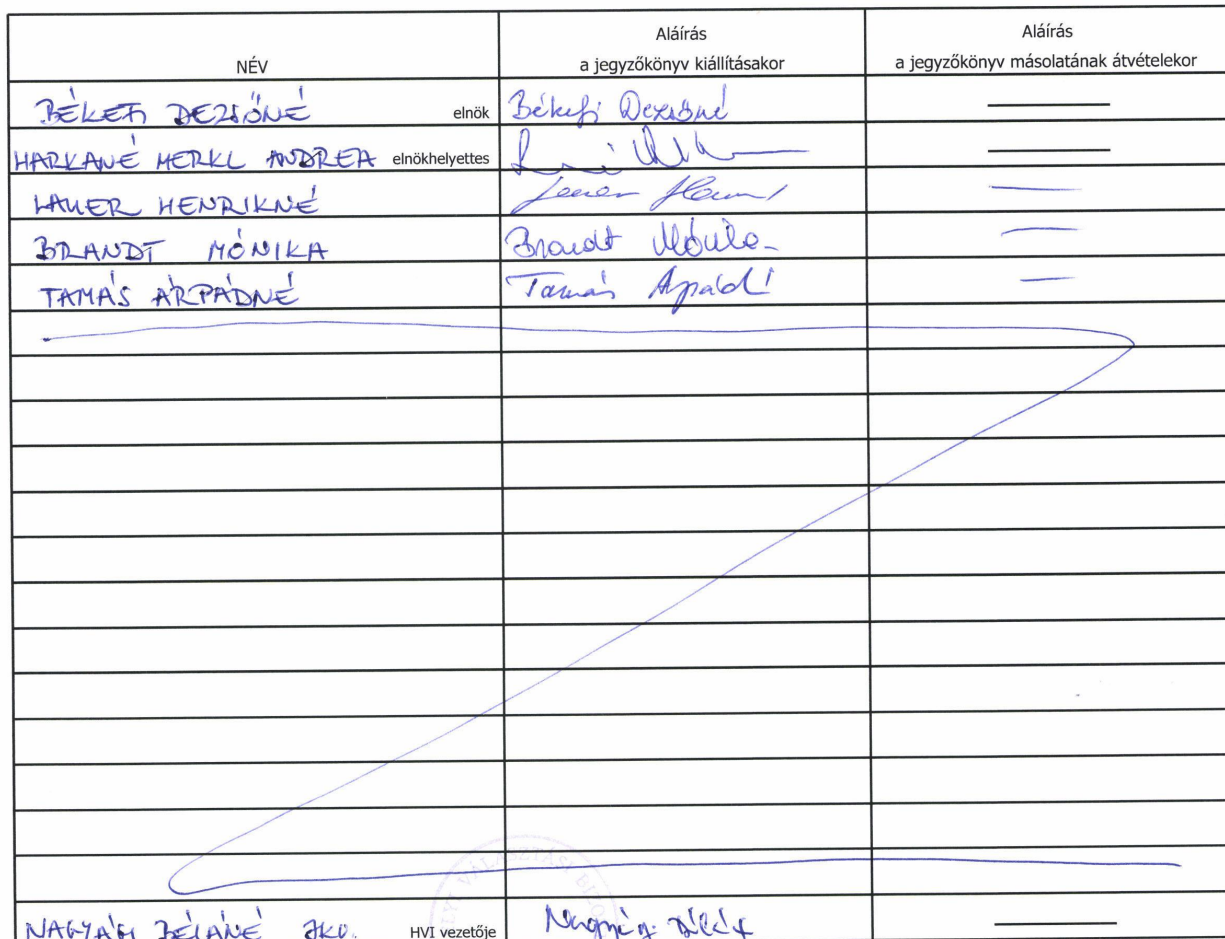 NÉV
Aláírás
a jegyzőkönyv kiállításakor
Aláírás
a jegyzőkönyv másolatának átvételekor
BÉKEFI DEZSŐNÉ elnök Békefi Dezsőné
HARKANÉ MERKL ANDREA elnökhelyettes
LAUER HENRIKNÉ
BRANDT MÓNIKA Brandt Mónika
TAMÁS ÁRPÁDNÉ Tamás
VÁLASZTÁSI
BÉLÁNÉ HVI vezetője